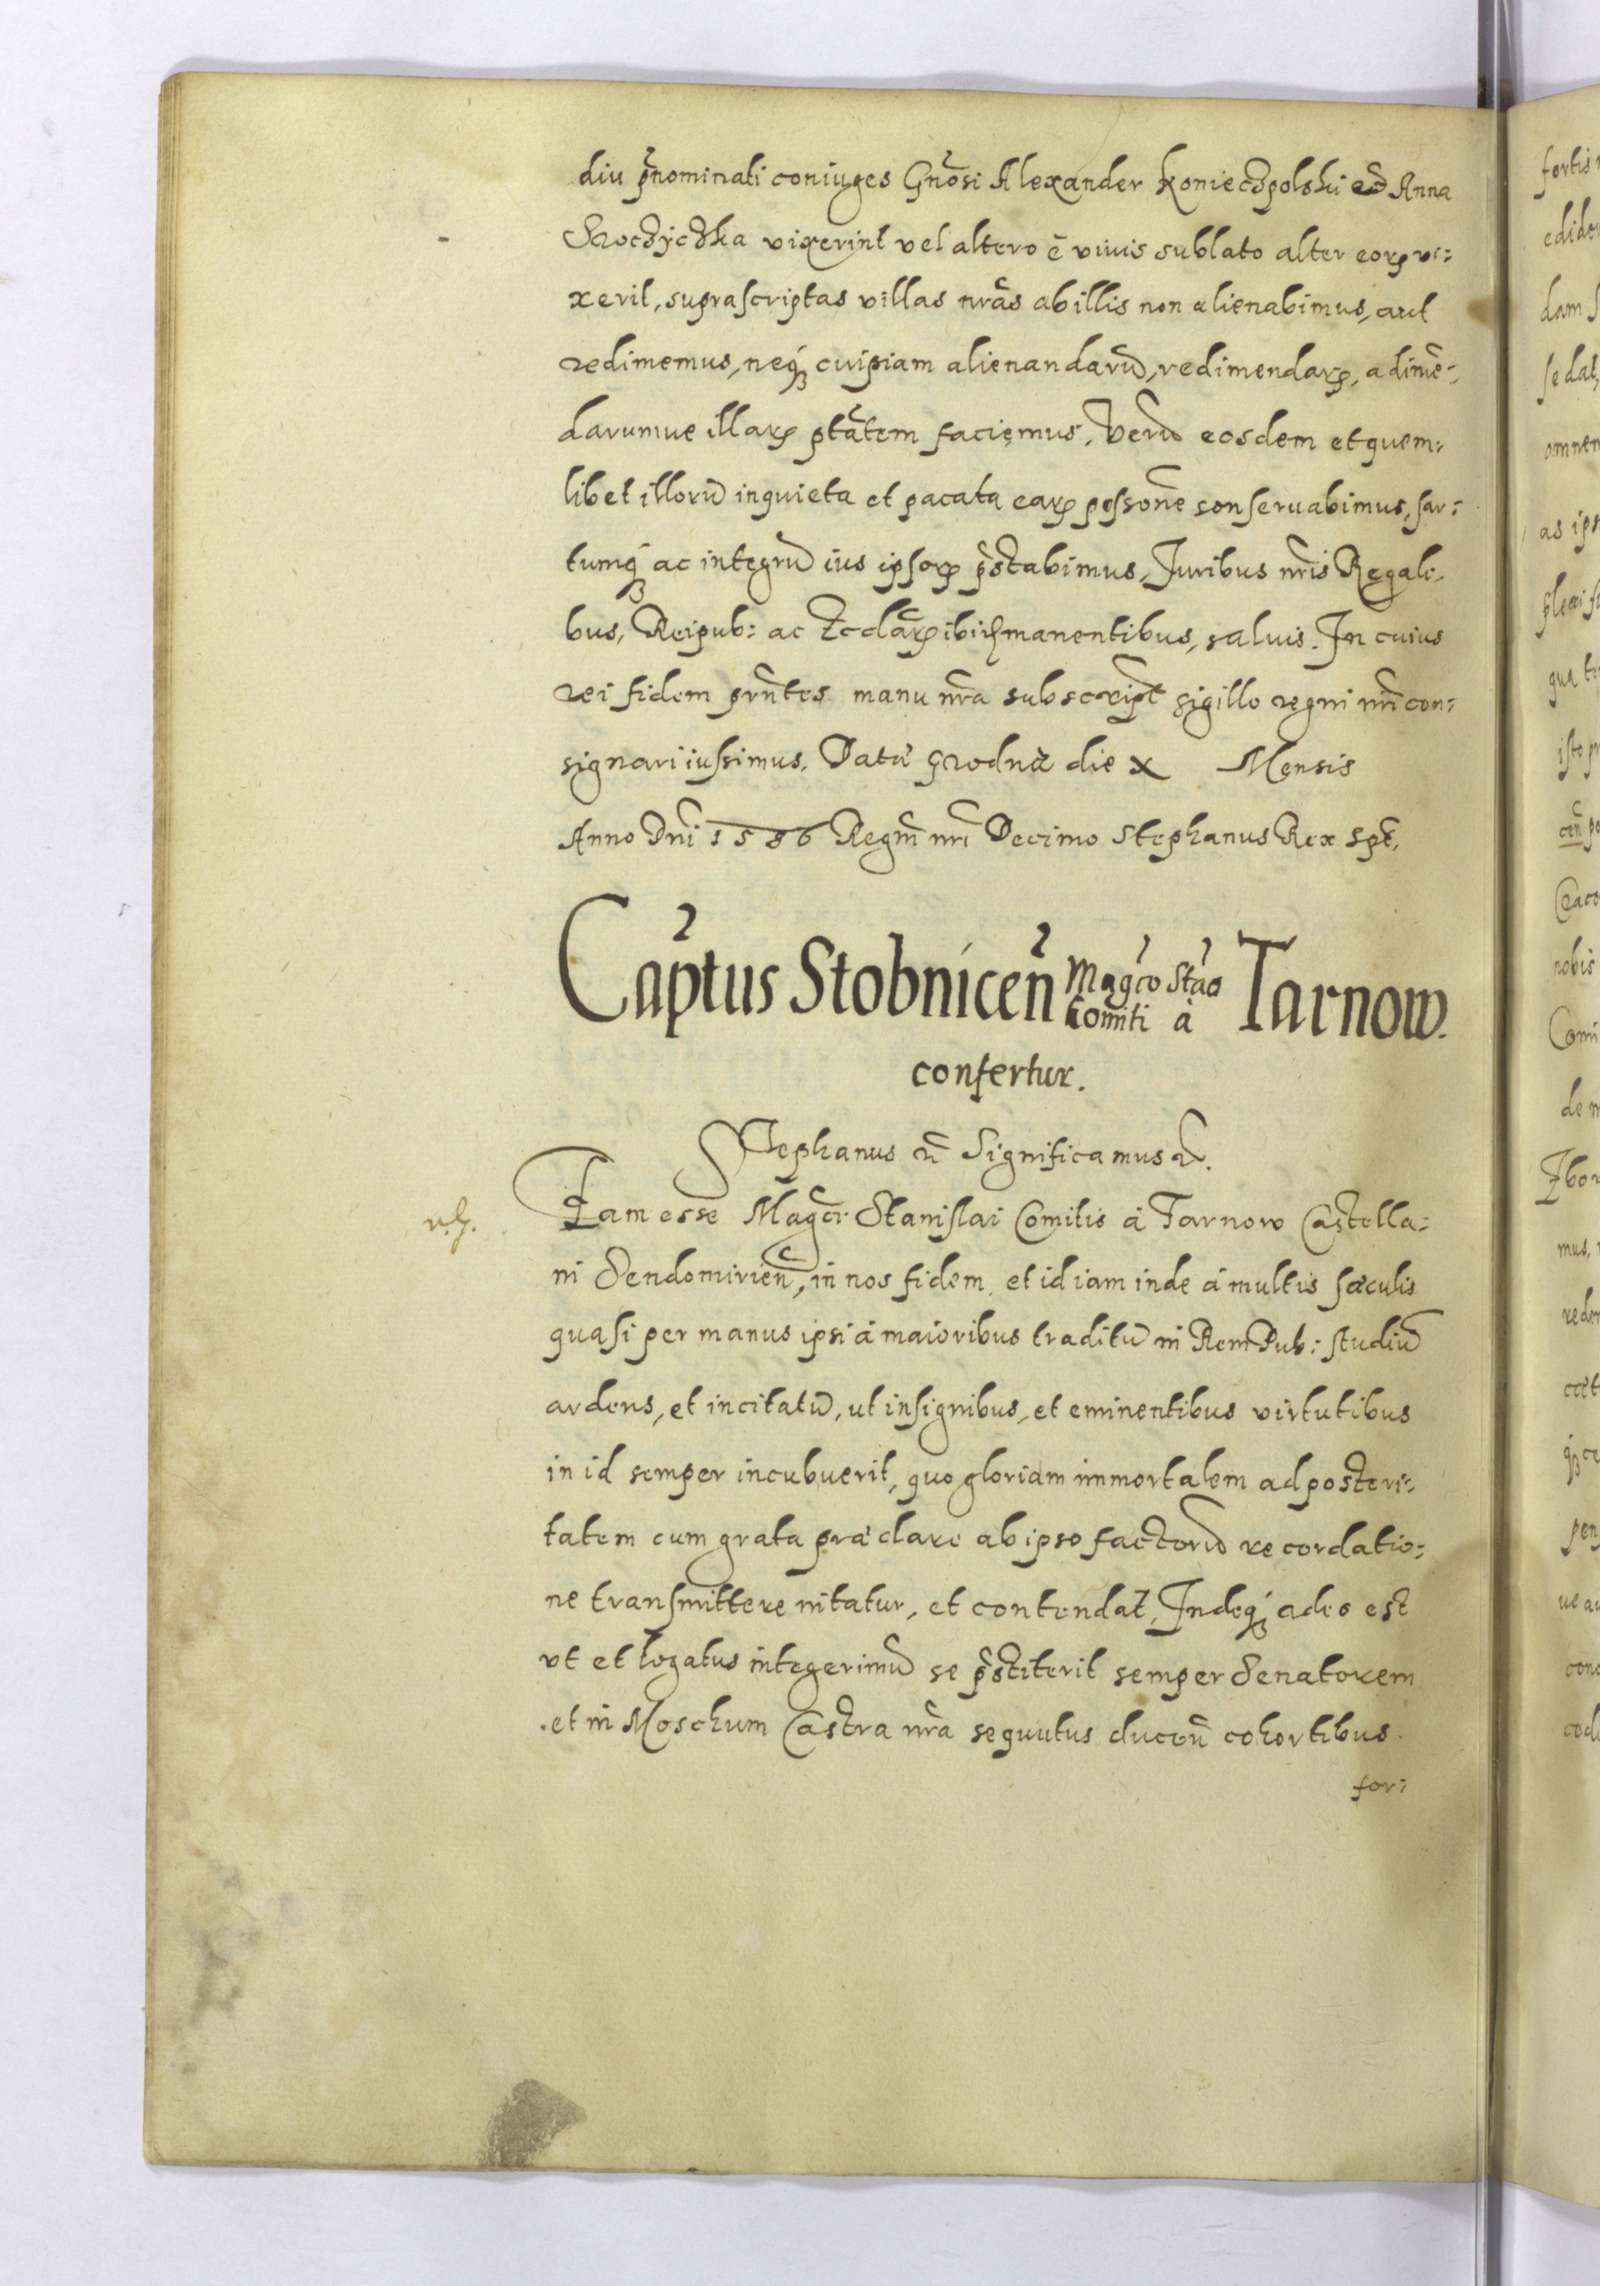 diu p̃nominati coniuges Gñosi Alexander Konieczpolski et Anna
Sroczyczka vixerint vel altero è viuis sublato alter eorꝝ vi:
xerit, suprascriptas villas nr̃as ab illis non alienabimus, aut
redimemus, neqꝫ cuipiam alienandarũ, redimendarꝝ, adimẽ:
darumue illarꝝ ptãtem faciemus, Verũ eosdem et quem:
libet illorũ in quieta et pacata earꝝ possone conseruabimus, sar:
tumqꝫ ac integrũ ius ipsorꝝ p̃stabimus, Juribus nr̃is Regali,
bus, Reipub: ac Ecclãrꝝ ibiꝗ manentibus, saluis. In cuius
rei fidem pr̃ntes manu nr̃a subscript sigillo regni nr̃i con:
signari iussimus. Datũ Grodnæ die X Mensis
Anno Dnĩ 1586 Regñ nr̃i Decimo Stephanus Rex spt,
Capt̃us Stobnicen̄ Magco Stão
Comiti à Tarnow.
confertur.
Stephanus rc̃ Significamus rc̃.
Eam esse Magci Stanislai Comitis à Tarnow Castella:
ni Sendomirien̄, in nos fidem et id iam inde à multis sæculis
quasi per manus ipsi à maioribus traditũ in Rem Pub: studiũ
ardens, et incitatũ, ut insignibus, et eminentibus virtutibus
in id semper incubuerit, quo gloriam immortalem ad posteri:
tatem cum grata præclare ab ipso factorũ recordatio:
ne transmittere nitatur, et contendat, Indeqꝫ adeo est
vt et togatus integerimũ se p̃stiterit semper Senatorem
et in Moschum Castra nr̃a sequutus ducen̄ cohortibus
for: